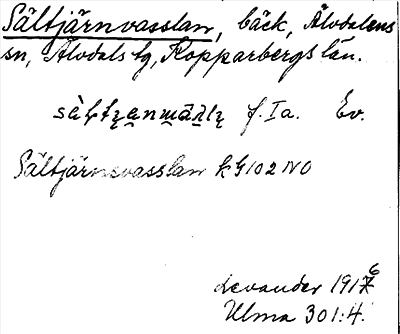 Sältjärnvasslan, bäck, Älvdalens
sn, Älvdals tg, Kopparbergs län.
f. Ia. Ev.
Sältjärnsvasslan k G 102 NO
Levander 1916
Ulma 301:4.